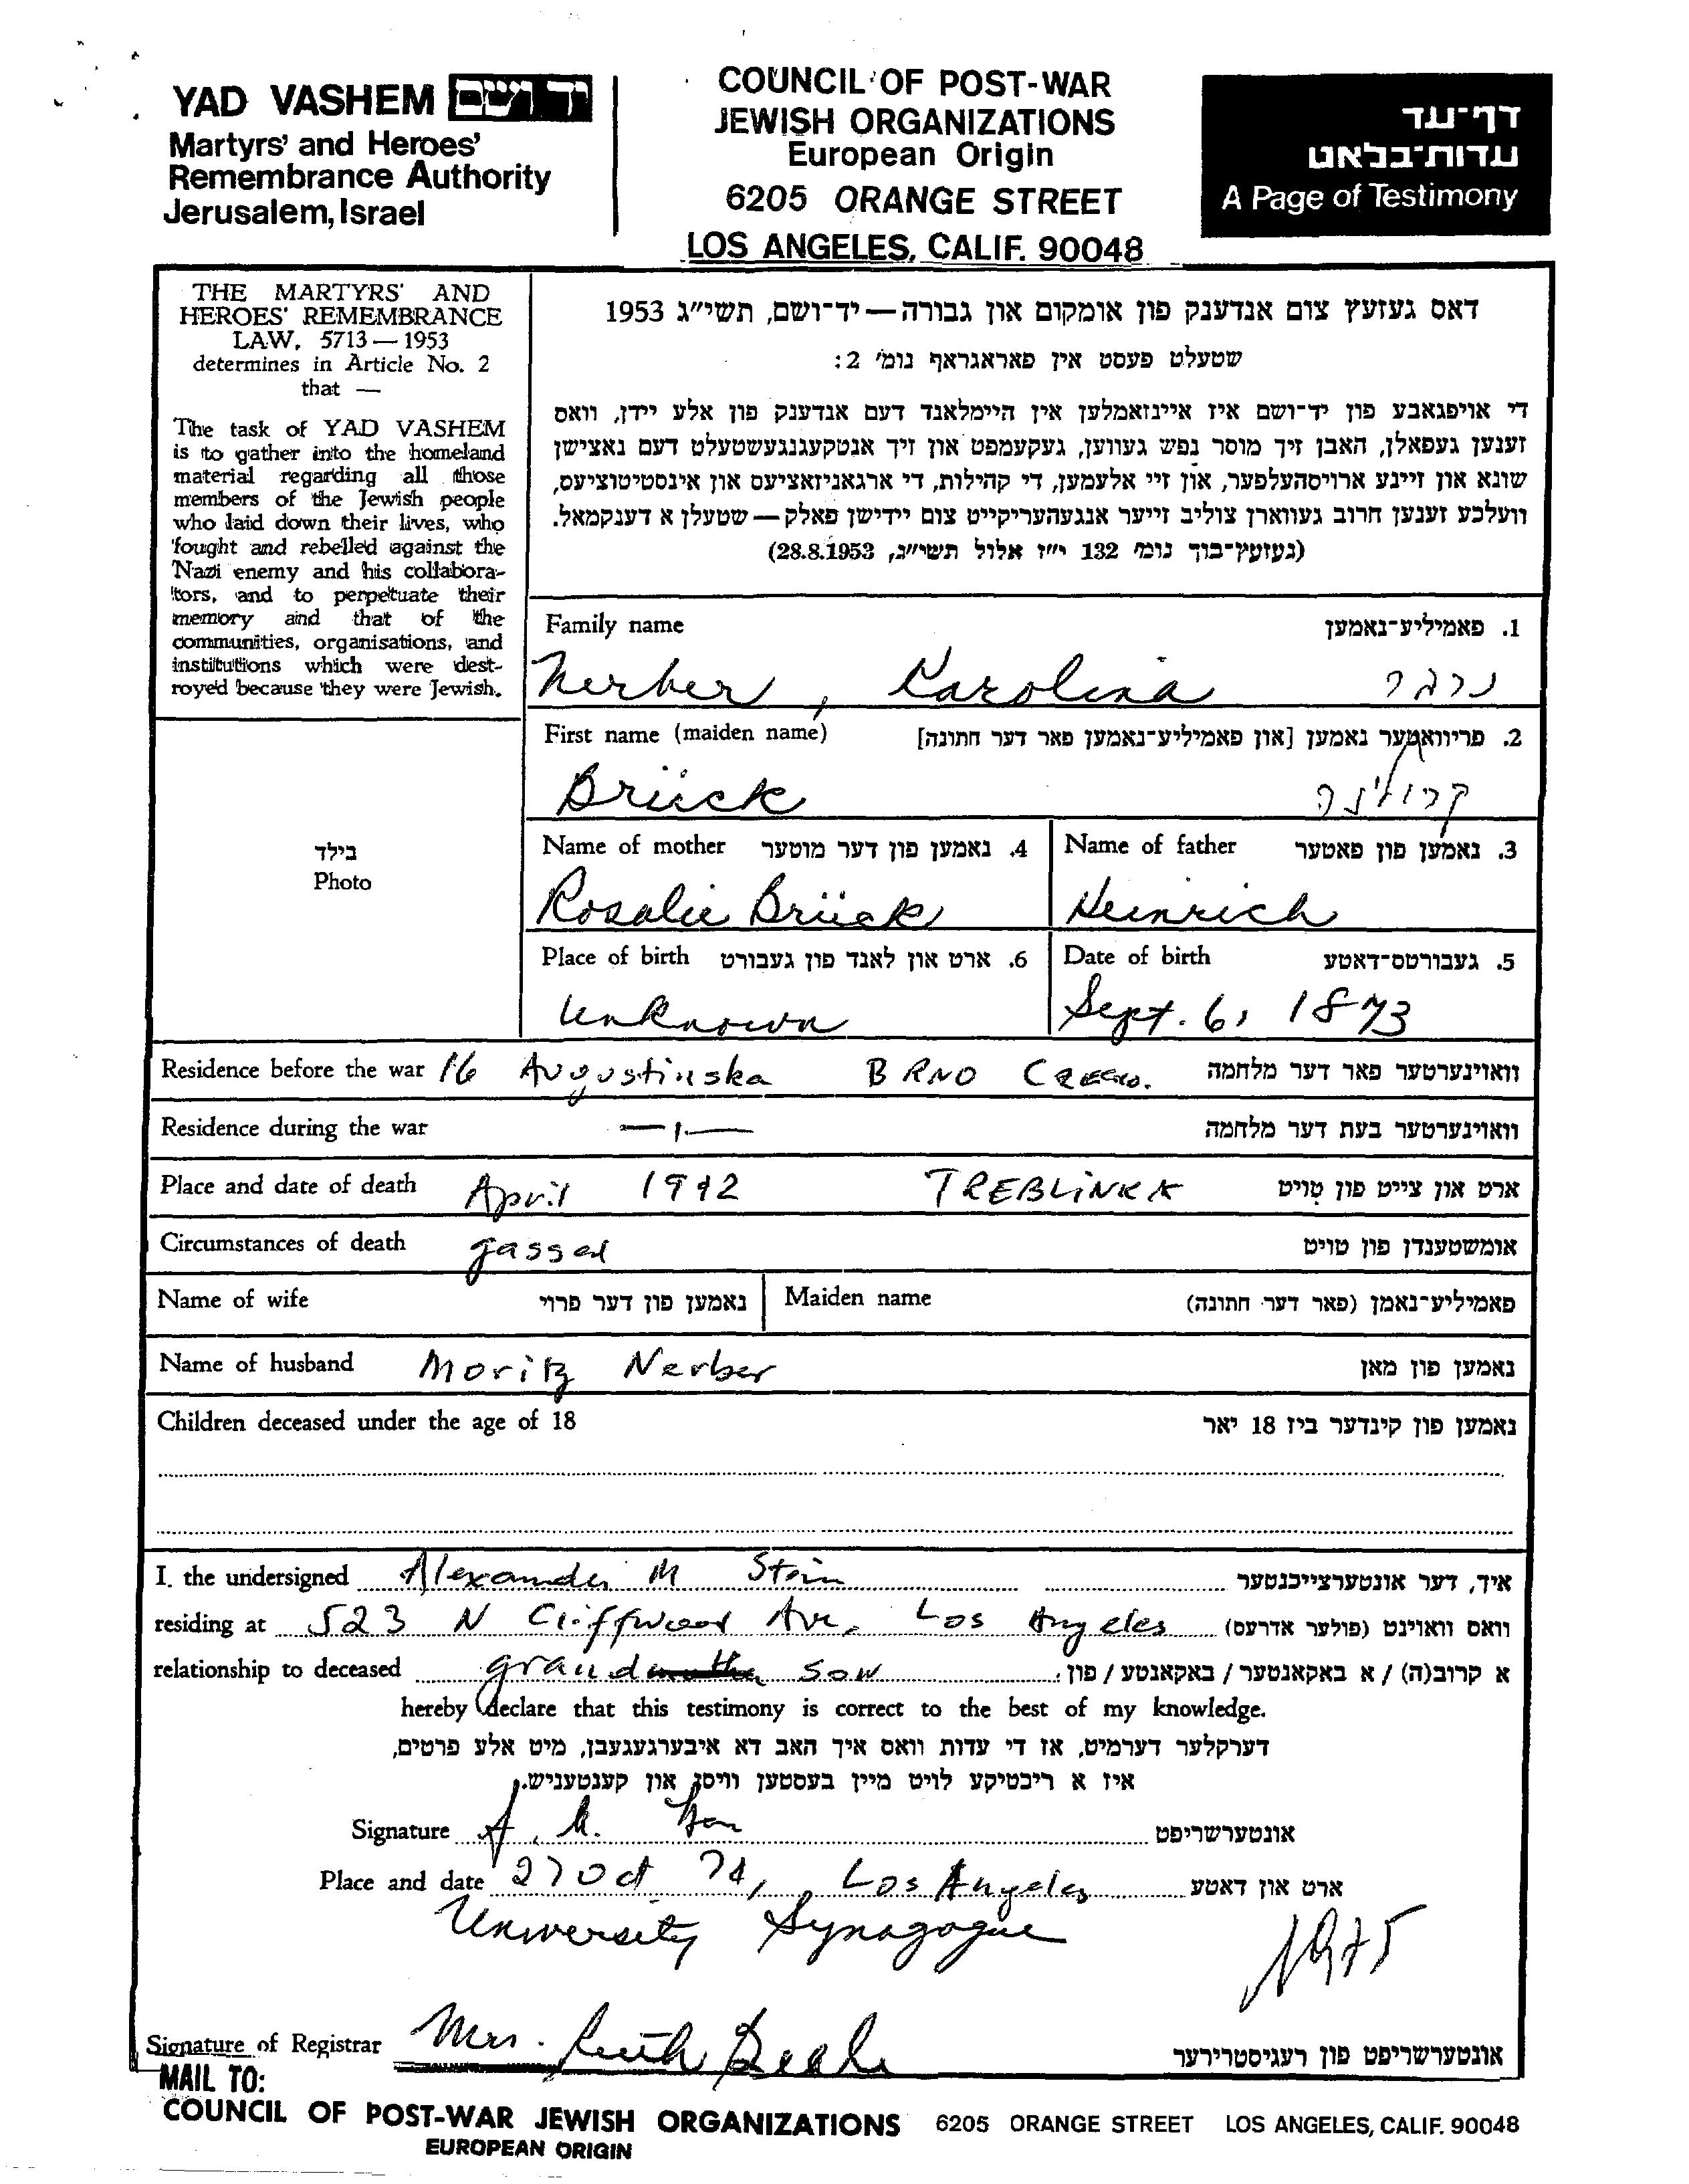 YAD VASHEM יד ושם
Martyrs' and Heroes'
Remembrance Authority
Jerusalem, Israel
COUNCIL OF POST-WAR
JEWISH ORGANIZATIONS
European Origin
6205 ORANGE STREET
LOS ANGELES, CALIF. 90048
דף־עד
עדות־בלאט
A Page of Testimony
THE MARTYRS' AND
HEROES' REMEMBRANCE
LAW, 5713 — 1953
determines in Article No. 2
that —
The task of YAD VASHEM
is to gather into the homeland
material regarding all those
members of the Jewish people
who laid down their lives, who
fought and rebelled against the
Nazi enemy and his collabora-
tors, and to perpetuate their
memory and that of the
communities, organisations, and
institutions which were dest-
royed because they were Jewish.
בילד
Photo
דאס געזעץ צום אנדענק פון אומקום און גבורה — יד־ושם, תשי״ג 1953
שטעלט פעסט אין פאראגראף נומ׳ 2:
די אויפגאבע פון יד־ושם איז איינזאמלען אין היימלאנד דעם אנדענק פון אלע יידן, וואס
זענען געפאלן, האבן זיך מוסר נפש געווען, געקעמפט און זיך אנטקעגנגעשטעלט דעם נאצישן
שונא און זיינע ארויסהעלפער, און זיי אלעמען, די קהילות, די ארגאניזאציעס און אינסטיטוציעס,
וועלכע זענען חרוב געווארן צוליב זייער אנגעהעריקייט צום יידישן פאלק — שטעלן א דענקמאל.
(געזעץ־בוך נומ׳ 132 י״ז אלול תשי״ג, 28.8.1953)
Family name 1. פאמיליע־נאמען
Nerber, Karolina נרבר
First name (maiden name) 2. פריוואטער נאמען [און פאמיליע־נאמען פאר דער חתונה]
Brück קרולינה
Name of mother 4. נאמען פון דער מוטער Name of father 3. נאמען פון פאטער
Rosalie Brück Heinrich
Place of birth 6. ארט און לאנד פון געבורט Date of birth 5. געבורטס־דאטע
Unknown Sept. 6, 1873
Residence before the war 16 Augustinska BRNO וואוינערטער פאר דער מלחמה
Residence during the war —〃— וואוינערטער בעת דער מלחמה
Place and date of death April 1942 TREBLINKA ארט און צייט פון טויט
Circumstances of death gassed אומשטענדן פון טויט
Name of wife נאמען פון דער פרוי Maiden name פאמיליע־נאמן (פאר דער חתונה)
Name of husband Moritz Nerber נאמען פון מאן
Children deceased under the age of 18 נאמען פון קינדער ביז 18 יאר
I. the undersigned Alexander M Stein איד, דער אונטערצייכנטער
residing at 523 N Cliffwood Ave, Los Angeles וואס וואוינט (פולער אדרעס)
relationship to deceased grandson א קרוב(ה) / א באקאנטער / באקאנטע / פון:
hereby declare that this testimony is correct to the best of my knowledge.
דערקלער דערמיט, אז די עדות וואס איך האב דא איבערגעגעבן, מיט אלע פרטים,
איז א ריכטיקע לויט מיין בעסטען וויסן און קענטעניש.
Signature A. M. Stein אונטערשריפט
Place and date 27 Oct 74, Los Angeles ארט און דאטע
University Synagogue
1975
Signature of Registrar Mrs. Ruth אונטערשריפט פון רעגיסטרירער
MAIL TO:
COUNCIL OF POST-WAR JEWISH ORGANIZATIONS 6205 ORANGE STREET LOS ANGELES, CALIF. 90048
EUROPEAN ORIGIN